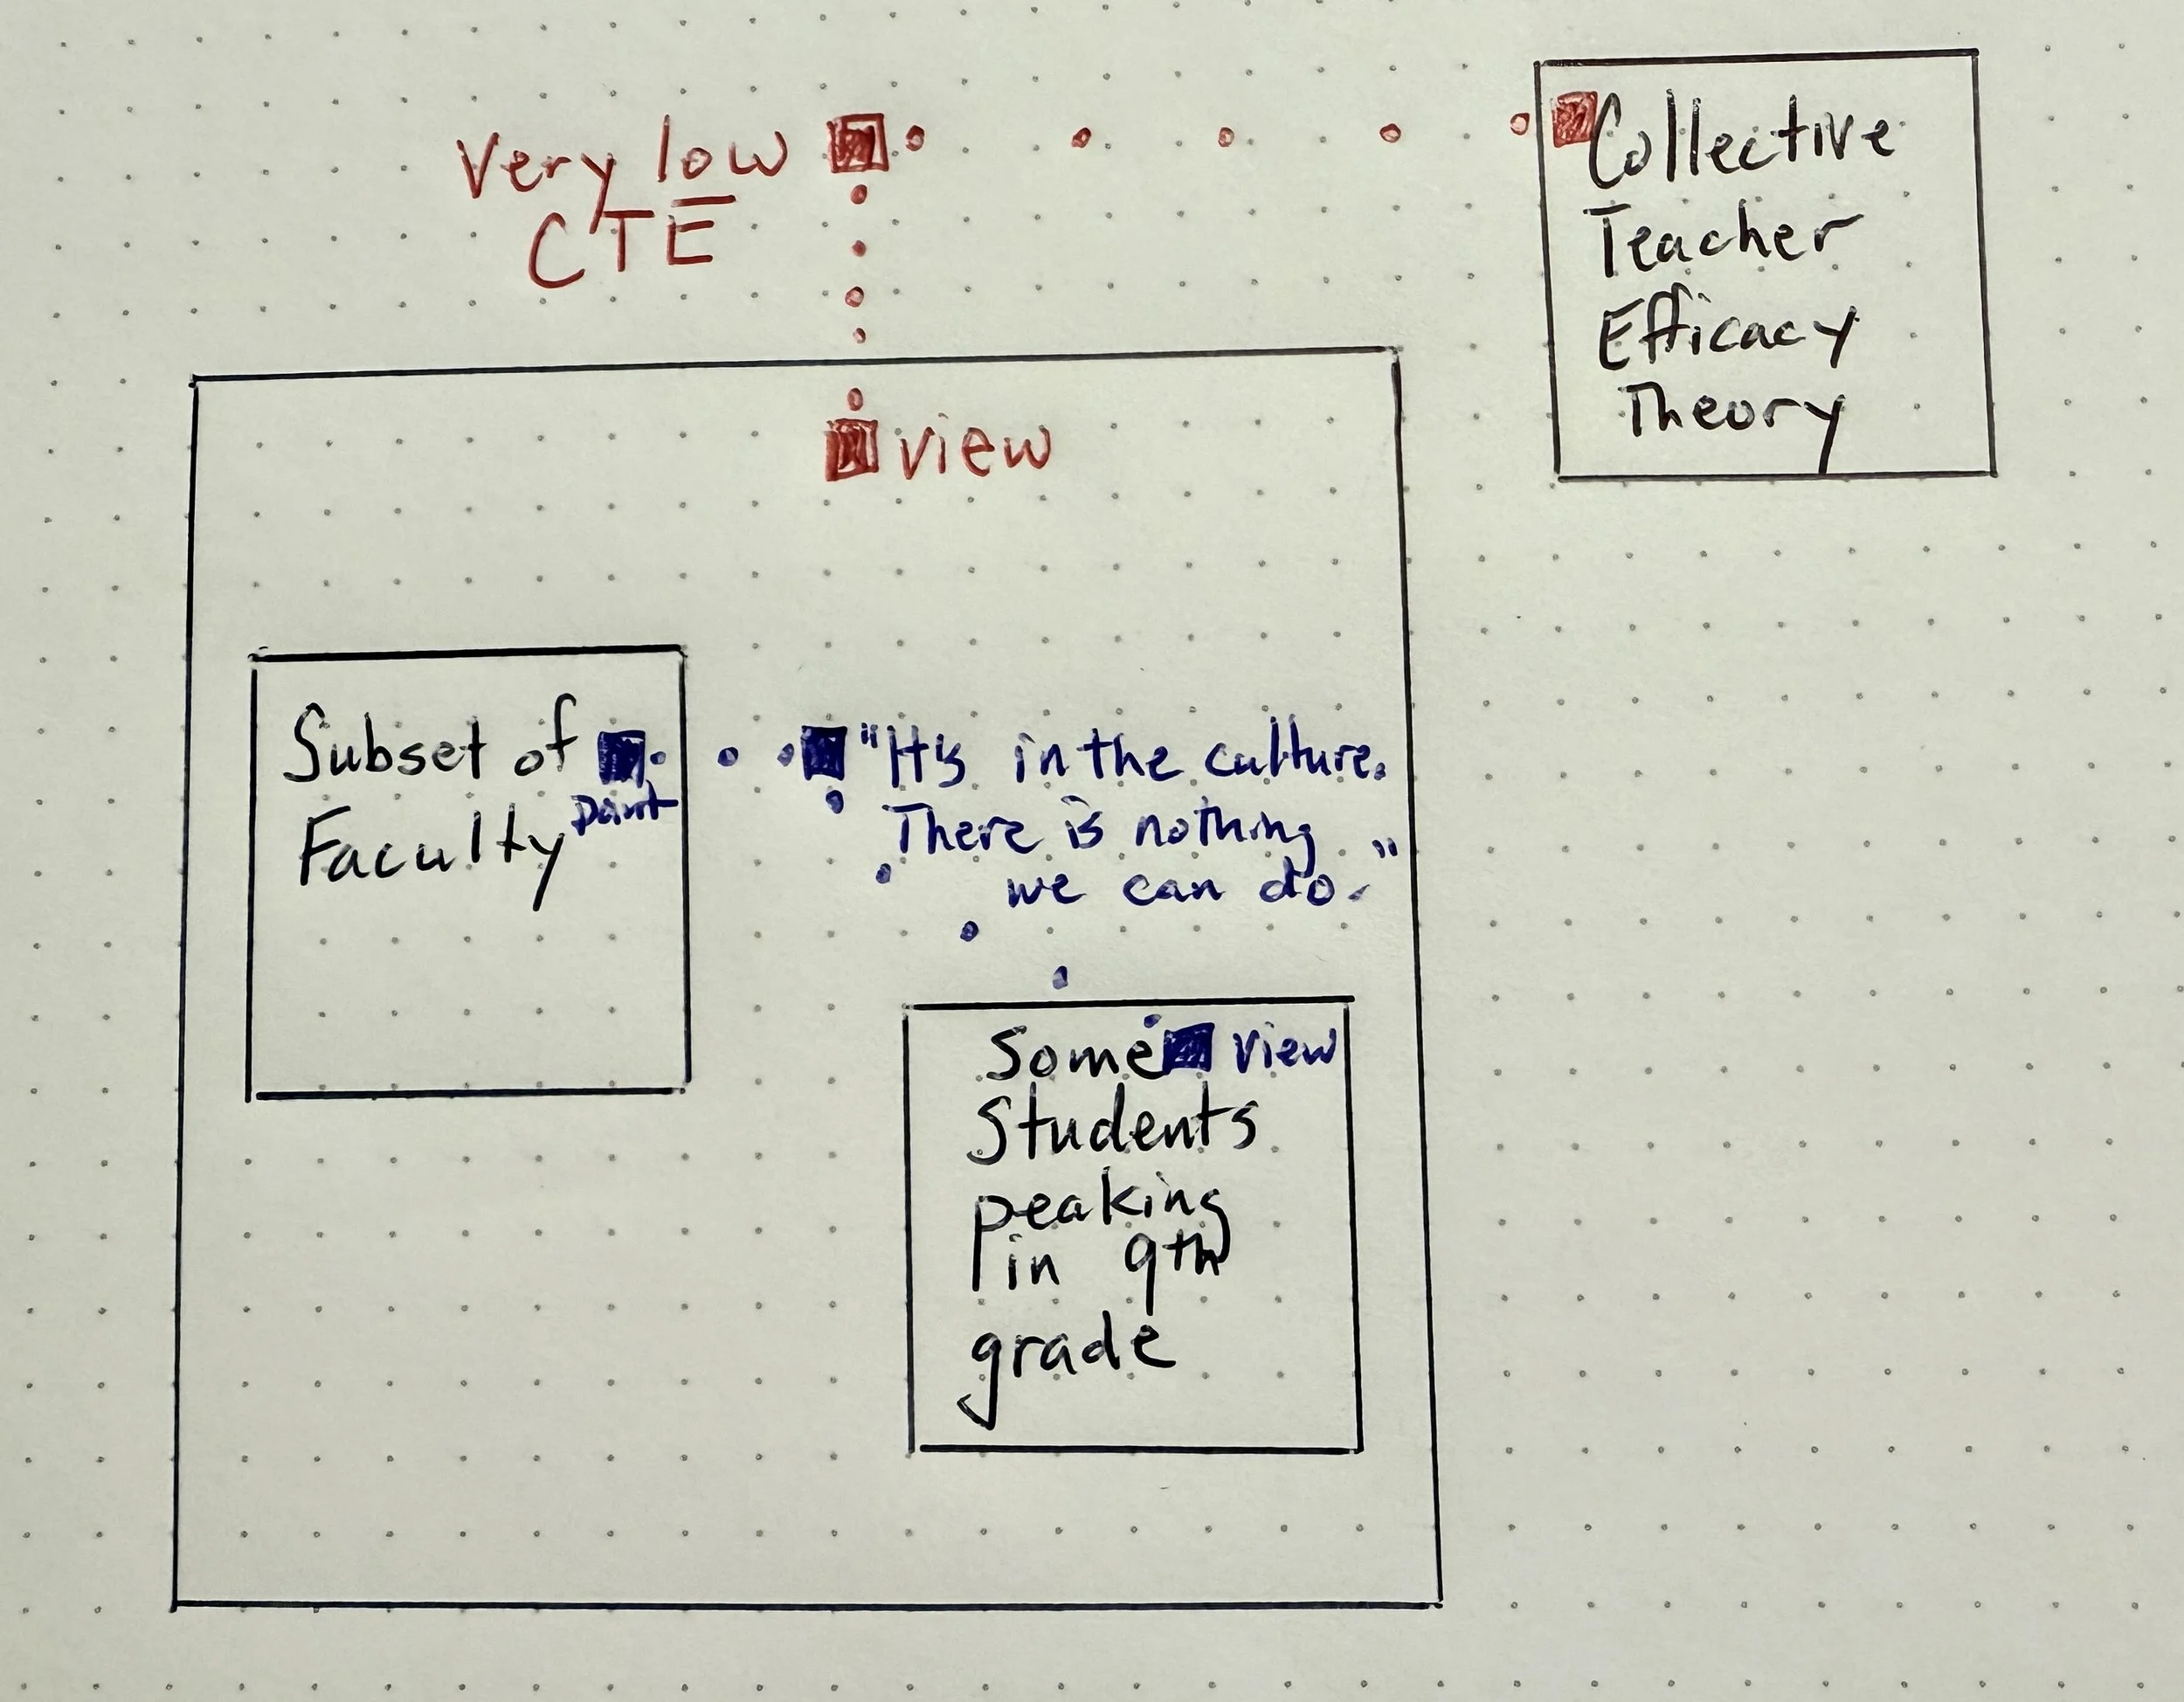 Very low
CTE
Collective
Teacher
Efficacy
Theory
view
Subset of
Faculty
point
"It's in the culture.
There is nothing
we can do."
Some
view
Students
peaking
in 9th
grade